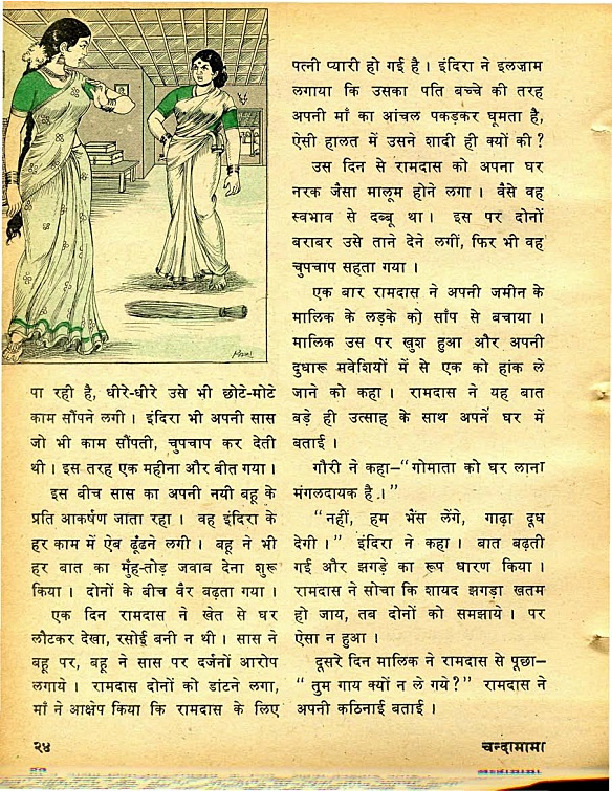 पा रही है, धीरे-धीरे उसे भी छोटे-मोटे
काम सौंपने लगी। इंदिरा भी अपनी सास
जो भी काम सौंपती, चुपचाप कर देती
थी। इस तरह एक महीना और बीत गया।
इस बीच सास का अपनी नयी बहू के
प्रति आकर्षण जाता रहा। वह इंदिरा के
हर काम में ऐब ढूंढने लगी। बहू ने भी
हर बात का मुँह-तोड़ जवाब देना शुरू
किया। दोनों के बीच वैर बढ़ता गया।
एक दिन रामदास ने खेत से घर
लौटकर देखा, रसोई बनी न थी। सास ने
बहू पर, बहू ने सास पर दर्जनों आरोप
लगाये। रामदास दोनों को डांटने लगा,
माँ ने आक्षेप किया कि रामदास के लिए
पत्नी प्यारी हो गई है। इंदिरा ने इलज़ाम
लगाया कि उसका पति बच्चे की तरह
अपनी माँ का आंचल पकड़कर घूमता है,
ऐसी हालत में उसने शादी ही क्यों की?
उस दिन से रामदास को अपना घर
नरक जैसा मालूम होने लगा। वैसे वह
स्वभाव से दब्बू था। इस पर दोनों
बराबर उसे ताने देने लगीं, फिर भी वह
चुपचाप सहता गया।
एक बार रामदास ने अपनी जमीन के
मालिक के लड़के को साँप से बचाया।
मालिक उस पर खुश हुआ और अपनी
दुधारू मवेशियों में से एक को हांक ले
जाने को कहा। रामदास ने यह बात
बड़े ही उत्साह के साथ अपने घर में
बताई।
गौरी ने कहा–“गोमाता को घर लाना
मंगलदायक है।”
“नहीं, हम भैंस लेंगे, गाढ़ा दूध
देगी।” इंदिरा ने कहा। बात बढ़ती
गई और झगड़े का रूप धारण किया।
रामदास ने सोचा कि शायद झगड़ा खतम
हो जाय, तब दोनों को समझाये। पर
ऐसा न हुआ।
दूसरे दिन मालिक ने रामदास से पूछा–
“तुम गाय क्यों न ले गये?” रामदास ने
अपनी कठिनाई बताई।
२४
चन्दामामा